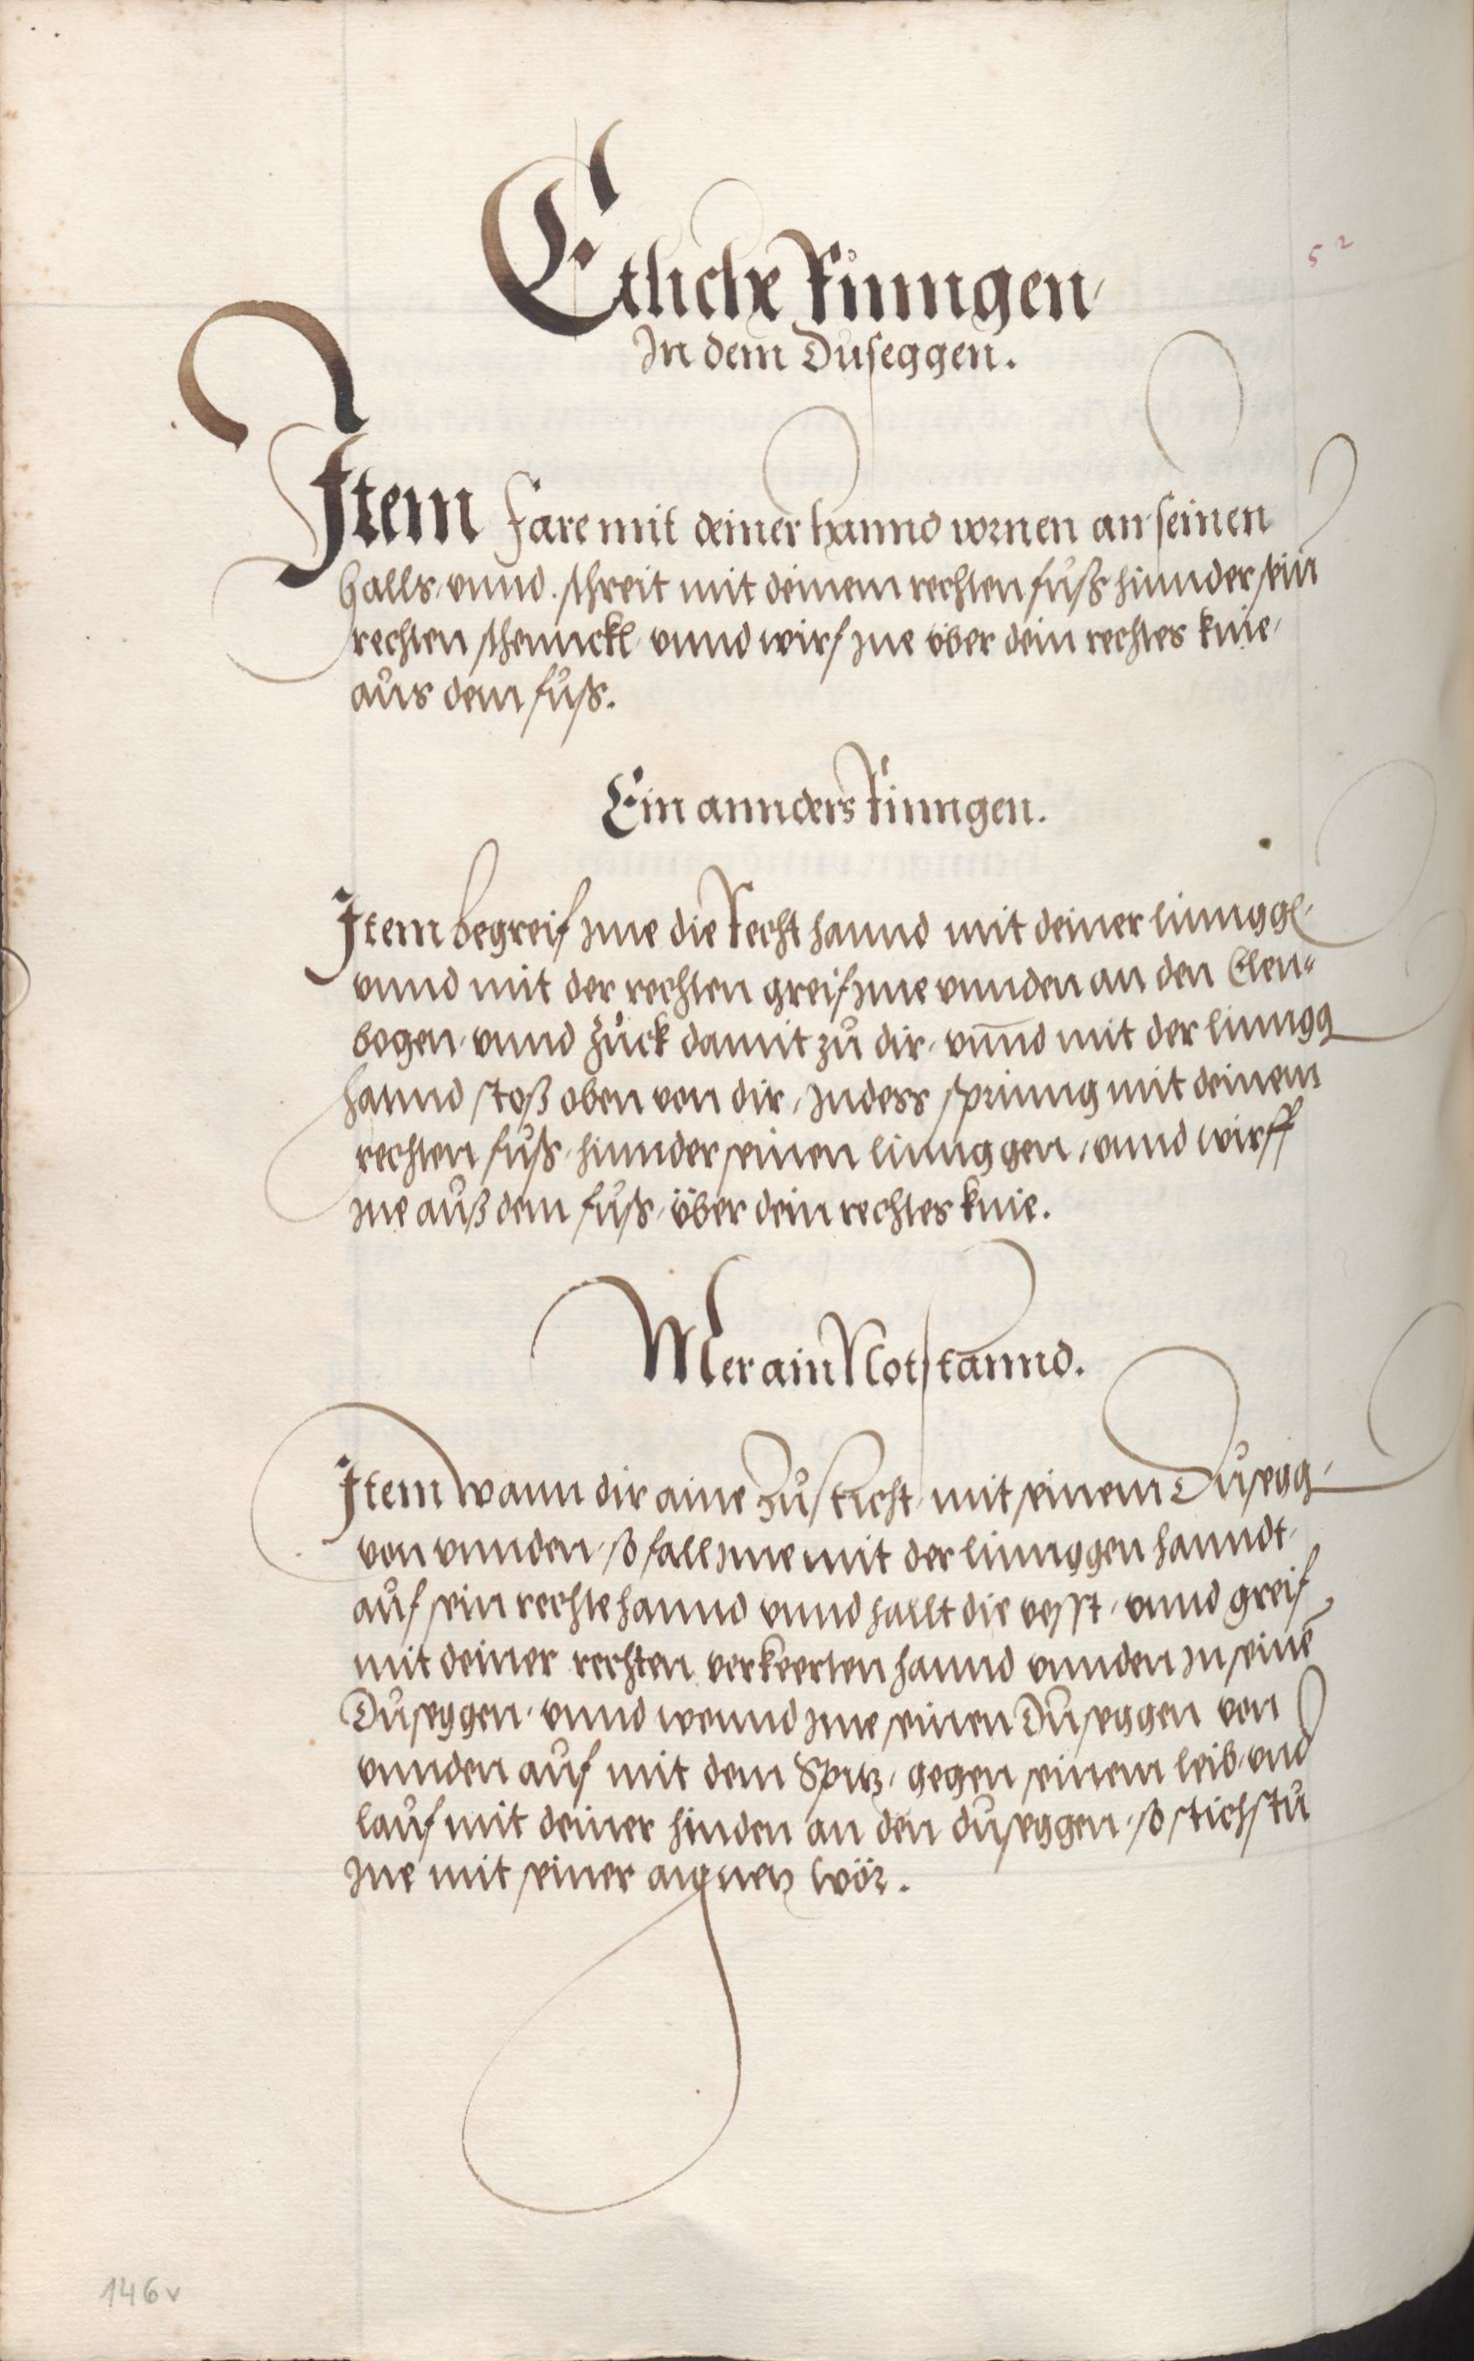 Etliche Ringen /
In dem Duseggen.
52
Item fare mit deiner hannd vornen an seinen
hallss / vnnd. schreit mit deinem rechten fůss hinnder sein
rechten schennckl vnnd wirf Ine über dein rechtes knie /
aůs dem fůss.
Ein annders Ringen.
Item begreif Ime die Recht hannd mit deiner linngg /
vnnd mit der rechten greif Ime vnnden an den Elen=
bogen / vnnd zůck damit zů dir / vn̄nd mit der linngg
hannd stoß oben von dir / Indess spring mit deinem
rechten fůss / hinnder seinen linnggen / vnnd wirff
Ine aůß dem fůss / über dein rechtes knie.
Mer ain Notstannd.
Item wann dir aine zů sticht mit seinem Důsegg /
von vnnden / so fall Ime mit der linnggen hanndt /
aůf sein rechte hannd vnnd hallt die vesst / vnnd greif
mit deiner rechten verkeerten hannd vnnden In seinē
Důseggen / vnnd wennd Ime seinen Důseggen von
vnnden aůf mit dem Spitz / gegen seinem leib / vnd
laůf mit deiner hinden an den důseggen / so stichstů
Ine mit seiner aignen wör.
146v